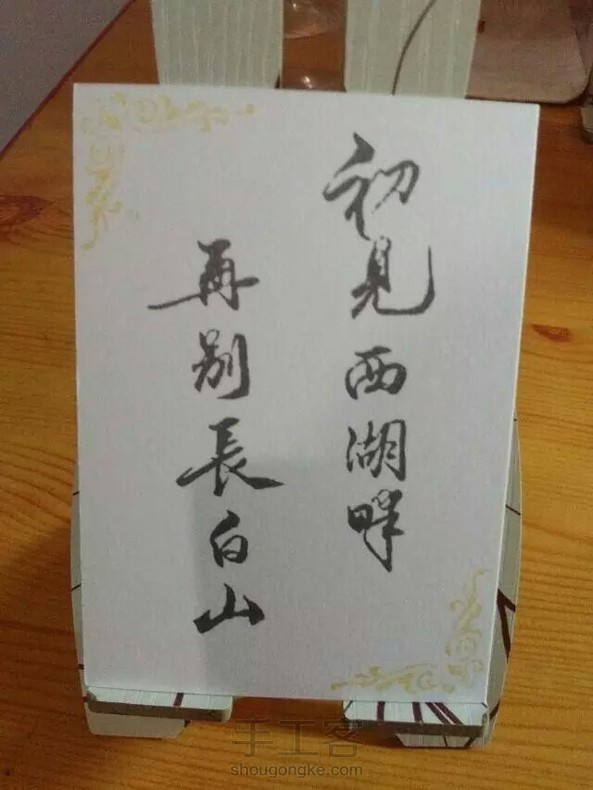 初见西湖畔
再别長白山
手工客
shougongke.com